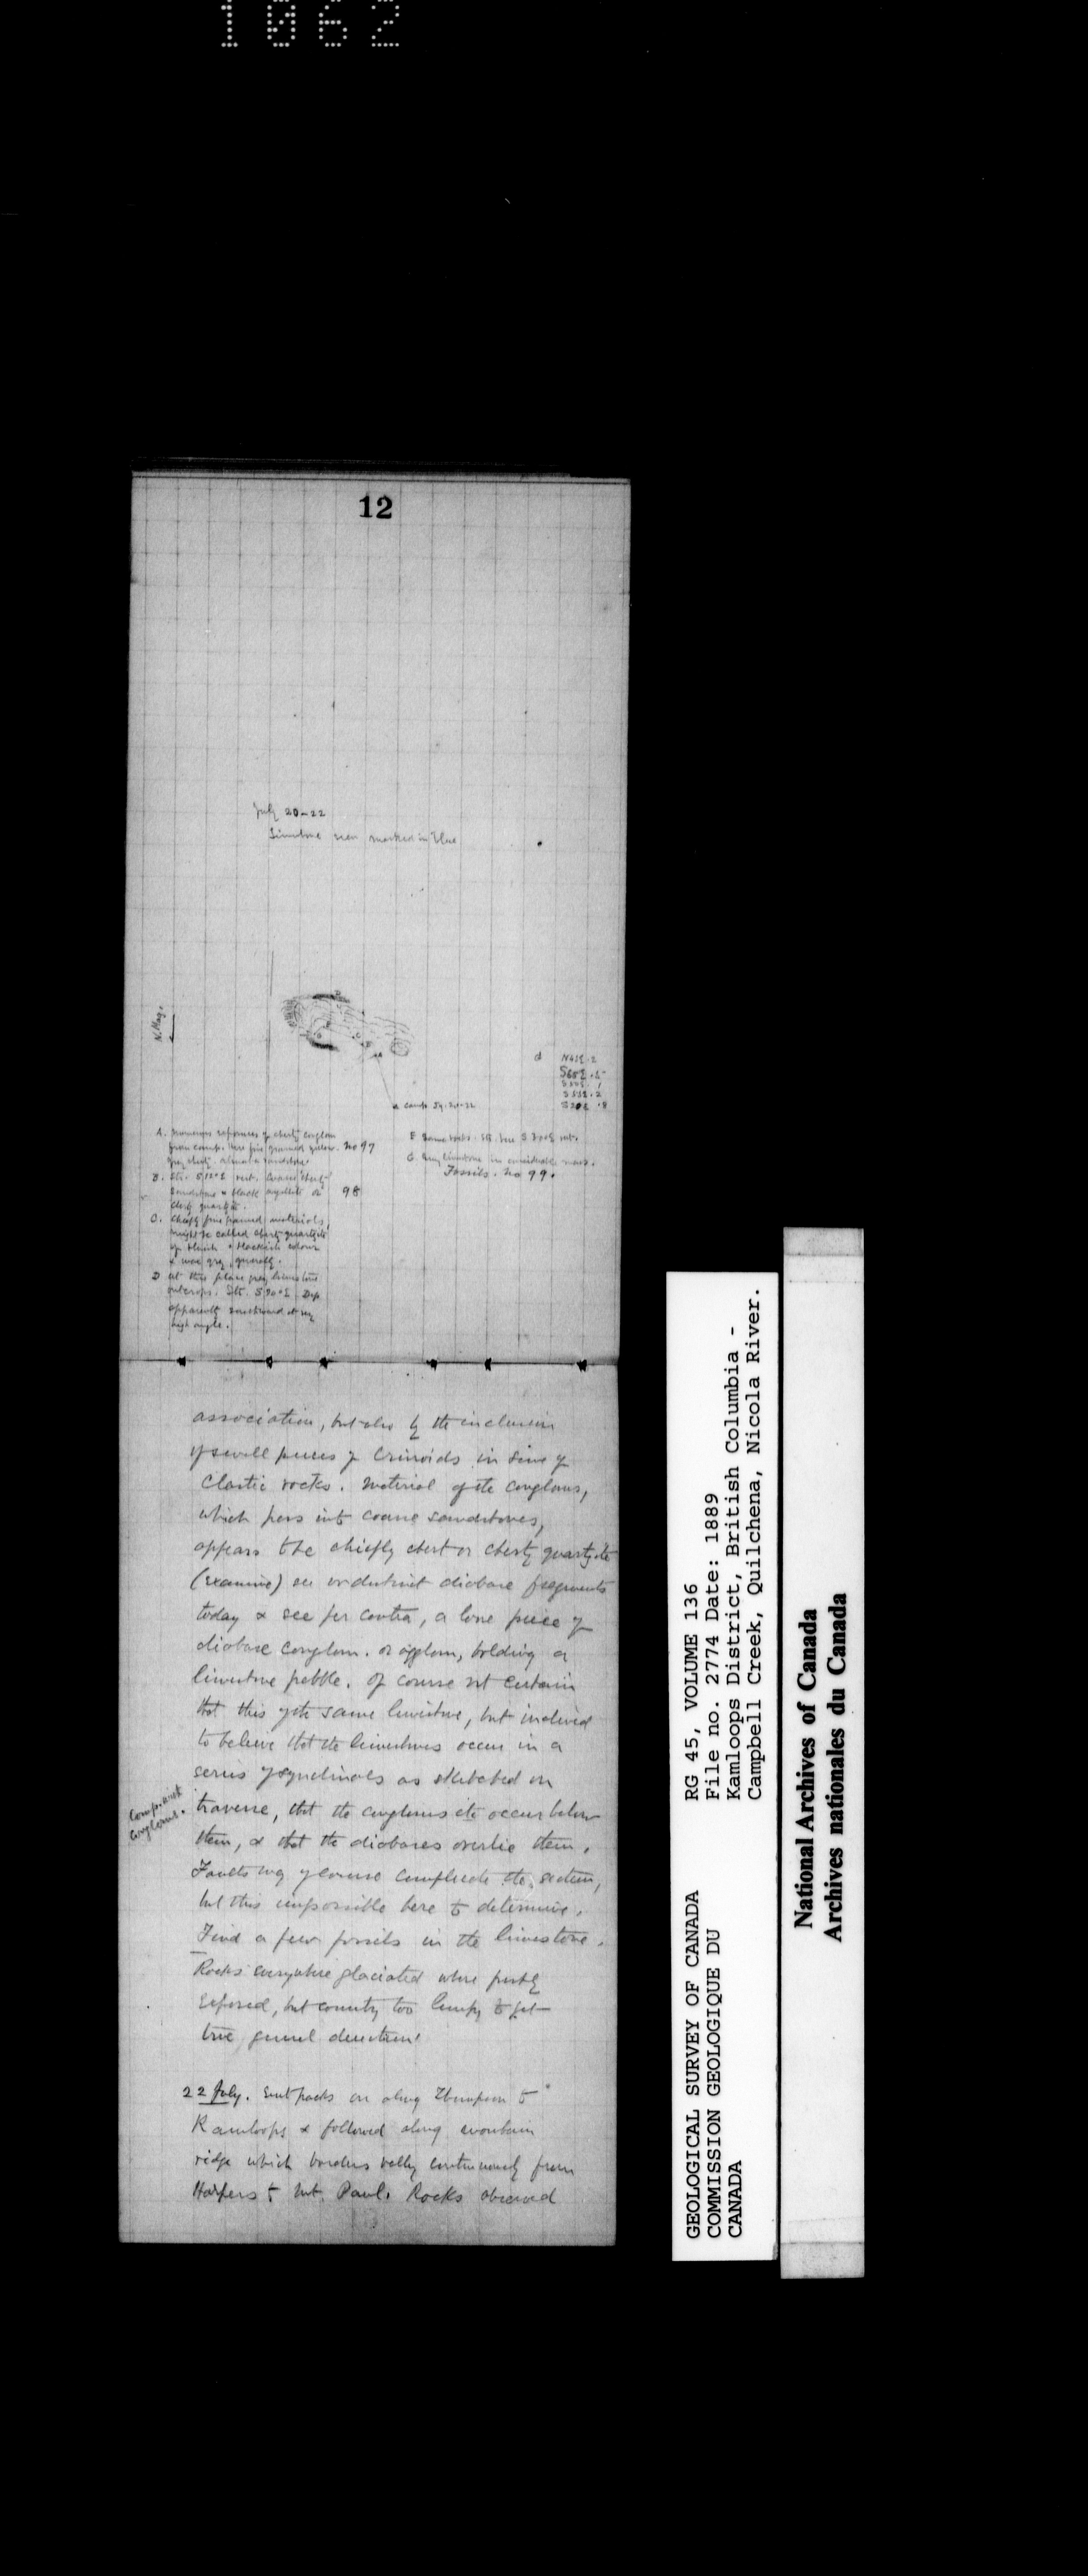 1062
12
July 20-22
Limestone seen marked in blue
N. Mag.
d N41E .2
S65E .5
S50E . 1
S55E .2
S20E .8
Camp Jy. 20-22
A. Numerous exposures of cherty conglom
from camp. Here fine grained yellow. No 97
gray cherty. almost a sandstone
B. Stk. S 12° E vert. Coarse "cherty"
Sandstone & black argillite or 98
cherty quartzite.
C. Chiefly fine grained materials,
might be called cherty-quartzite
of bluish & blackish colour
& more grey generally.
D at this place gray limestone
outcrops. Stk. S 70° E Dip
apparently southward at very
high angle.
F Same rocks. Stk. here S 30° E vert.
G. Gray limestone in considerable mass.
Fossils. No 99.
association, but also by the inclusion
of small pieces of Crinoids in some of
Clastic rocks. Material of the congloms,
which pass into coarse sandstones,
appears to be chiefly chert or cherty quartzite
(examine) see no distinct diabase fragments
today & see per contra, a lone piece of
diabase conglom. or agglom, holding a
limestone pebble. Of course not certain
that this of the same limestone, but inclined
to believe that the limestones occur in a
series of synclinals as sketched on
traverse, that the congloms etc occur below
them, & that the diabases overlie them.
Comp. with
conglom.
Faults may of course complicate the section,
but this impossible here to determine.
Find a few fossils in the limestone.
Rocks everywhere glaciated where freshly
exposed, but country too lumpy to get
true general direction.
22 July. Sent packs on along Thompson to
Kamloops & followed along mountain
ridge which borders valley continuously from
Harpers to Mt. Paul. Rocks observed
GEOLOGICAL SURVEY OF CANADA RG 45, VOLUME 136
COMMISSION GEOLOGIQUE DU File no. 2774 Date: 1889
CANADA Kamloops District, British Columbia -
Campbell Creek, Quilchena, Nicola River.
National Archives of Canada
Archives nationales du Canada